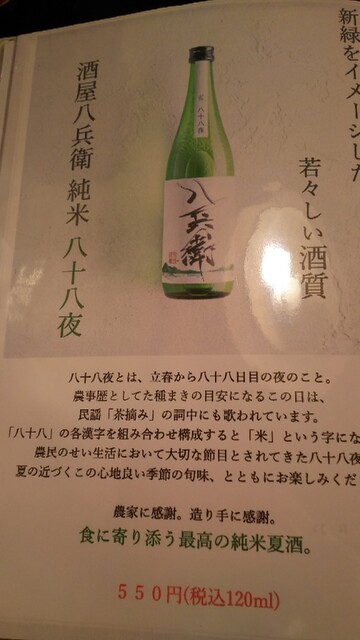 新緑をイメージした
若々しい酒質
酒屋八兵衛 純米 八十八夜
八十八夜
八兵衛
八十八夜とは、立春から八十八日目の夜のこと。
農事歴としてた種まきの目安になるこの日は、
民謡「茶摘み」の詞中にも歌われています。
「八十八」の各漢字を組み合わせ構成すると「米」という字にな
農民のせい生活において大切な節目とされてきた八十八夜
夏の近づくこの心地良い季節の旬味、とともにお楽しみくだ
農家に感謝。造り手に感謝。
食に寄り添う最高の純米夏酒。
550円(税込120ml)